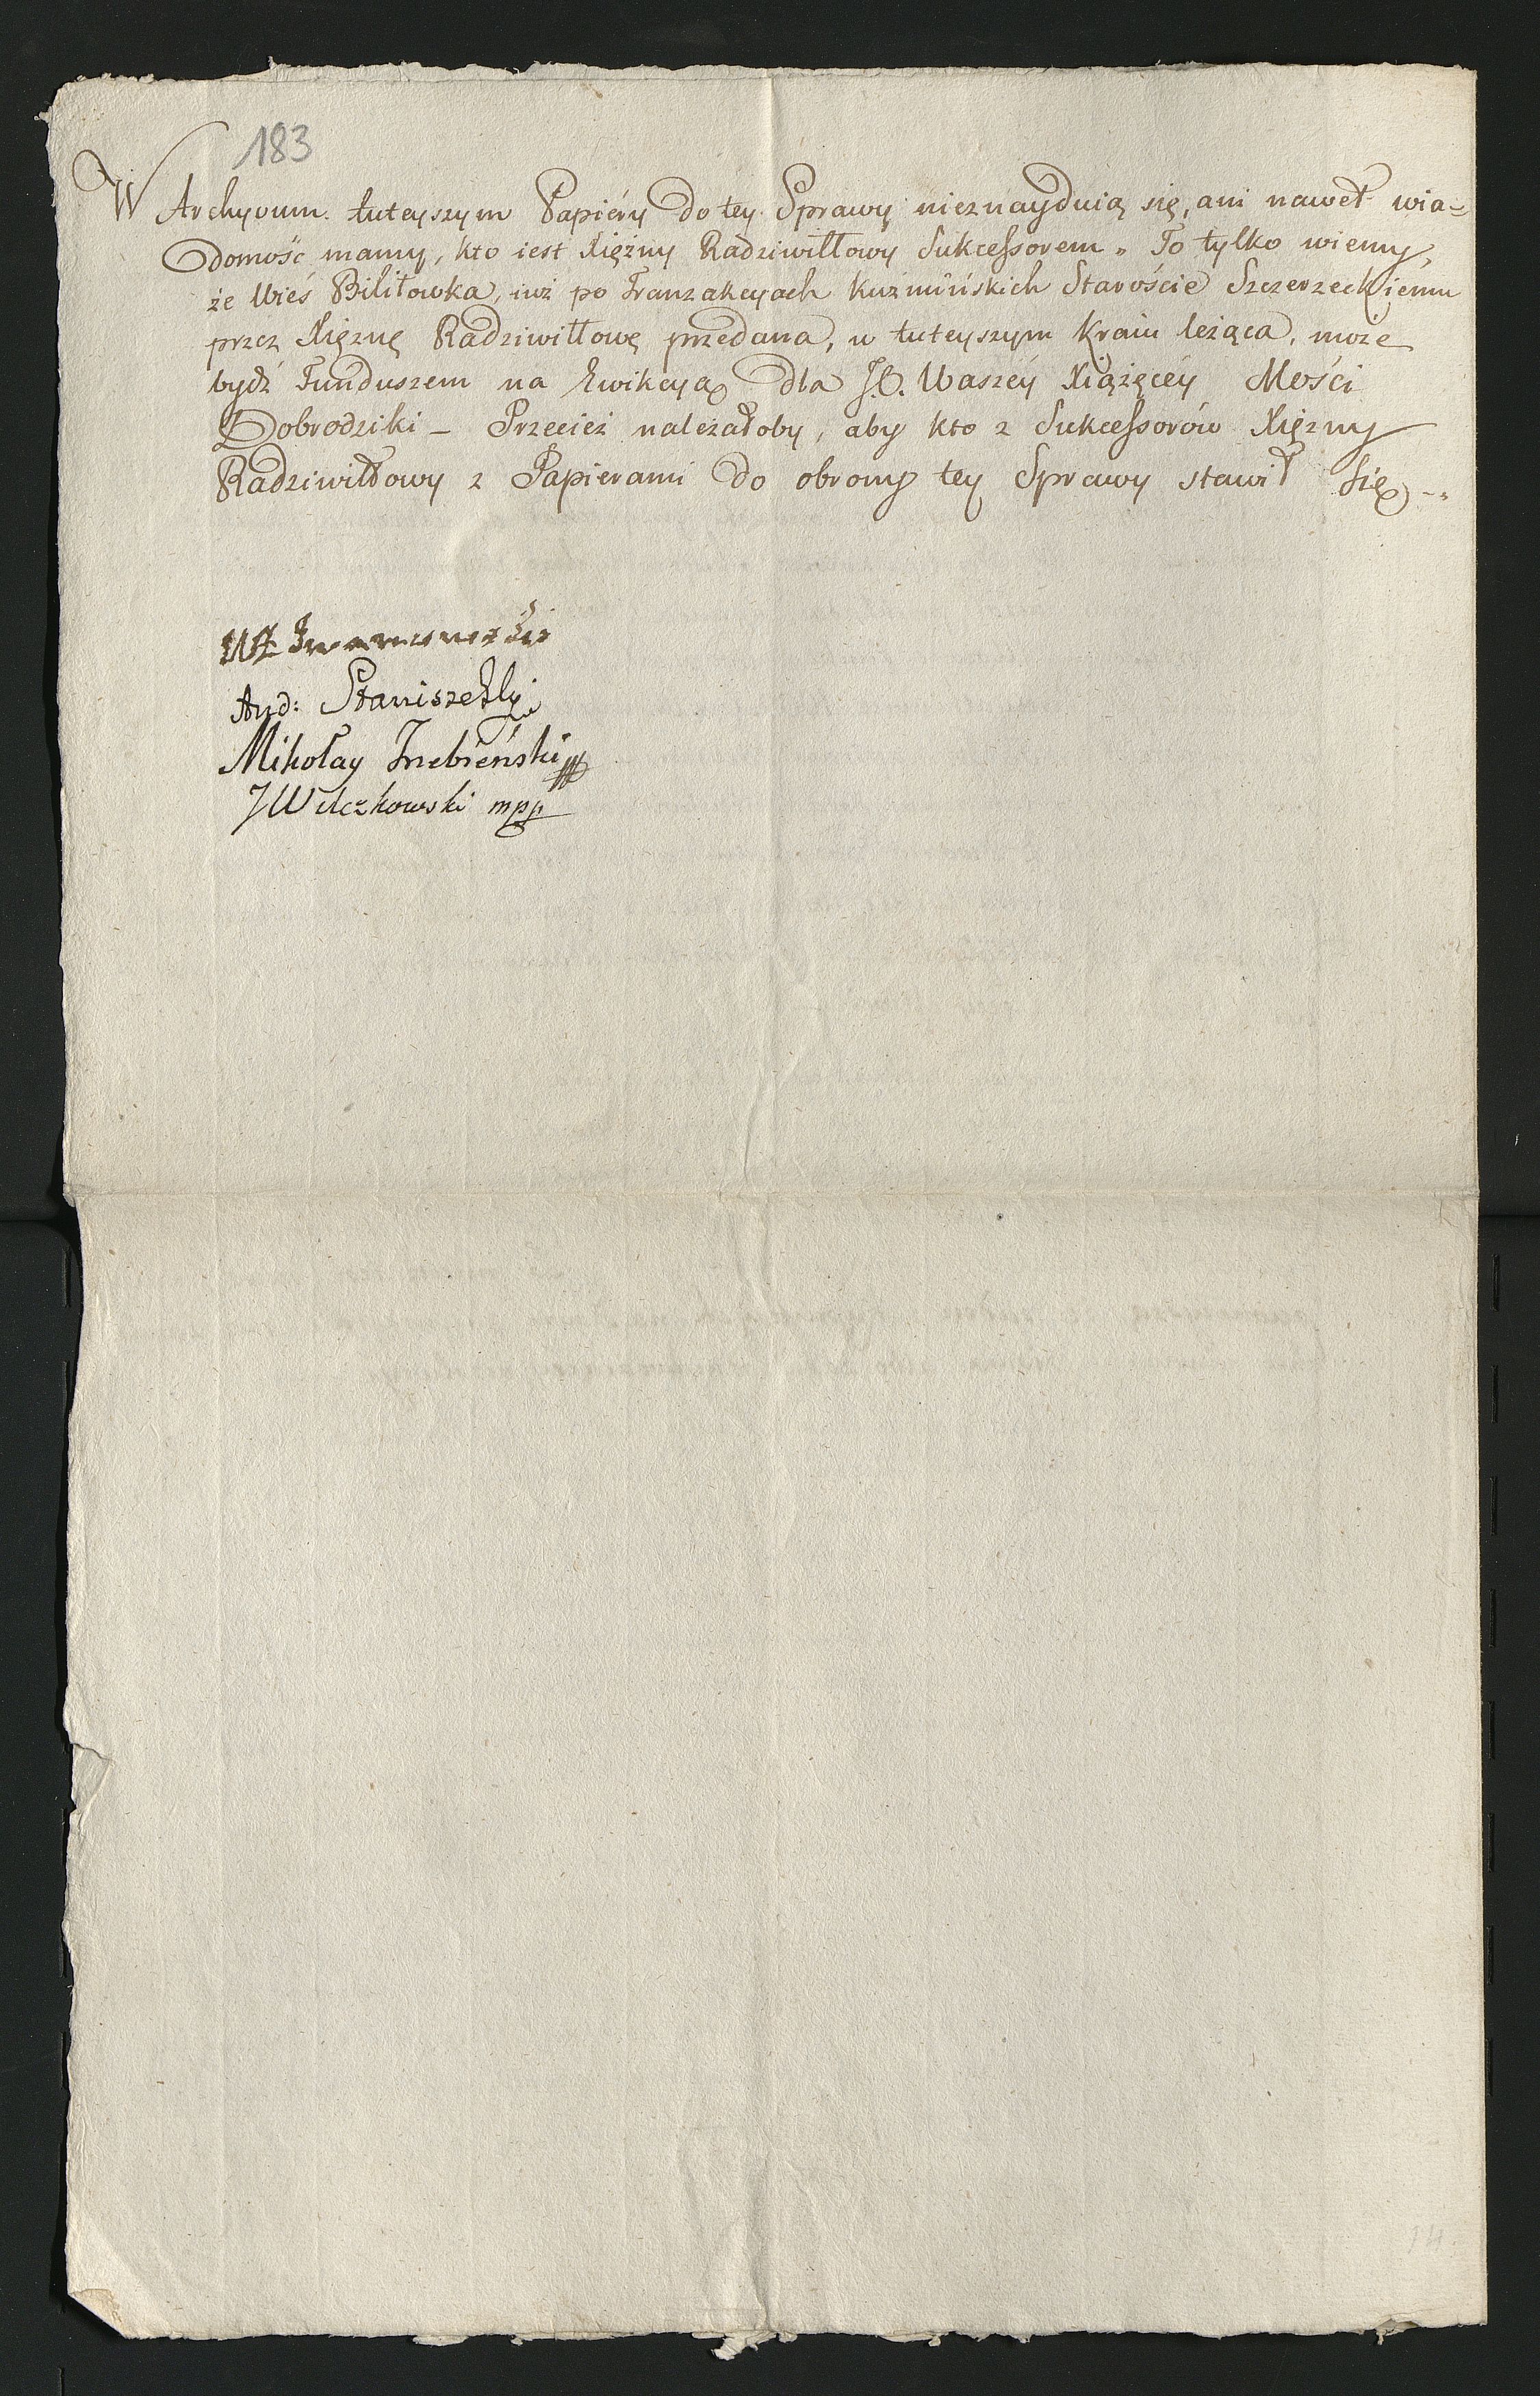 183
W Archyvum tuteyszym Papiéry do tey Sprawy nieznayduią się, ani nawet wia=
domość mamy, kto iest Xiężny Radziwiłłowy Sukcessorem. To tylko wiemy,
że Wieś Biliłowka, iuż po Tranzakcyach Kuźmińskich Staroście Szczerzeckiemu
przez Xięznę Radziwiłłowę przedana, w tuteyszym Kraiu leżąca, może
bydź Funduszem na Ewikcyą dla J.O. Waszéy Xiążęcéy Mości
Dobrodziki – Przecież należałoby, aby kto z Sukcessorów Xiężny
Radziwiłłowy z Papierami do obrony tey Sprawy stawił się –
And: Staniszewski
Mikołay Trebieński
J Wilczkowski mpp